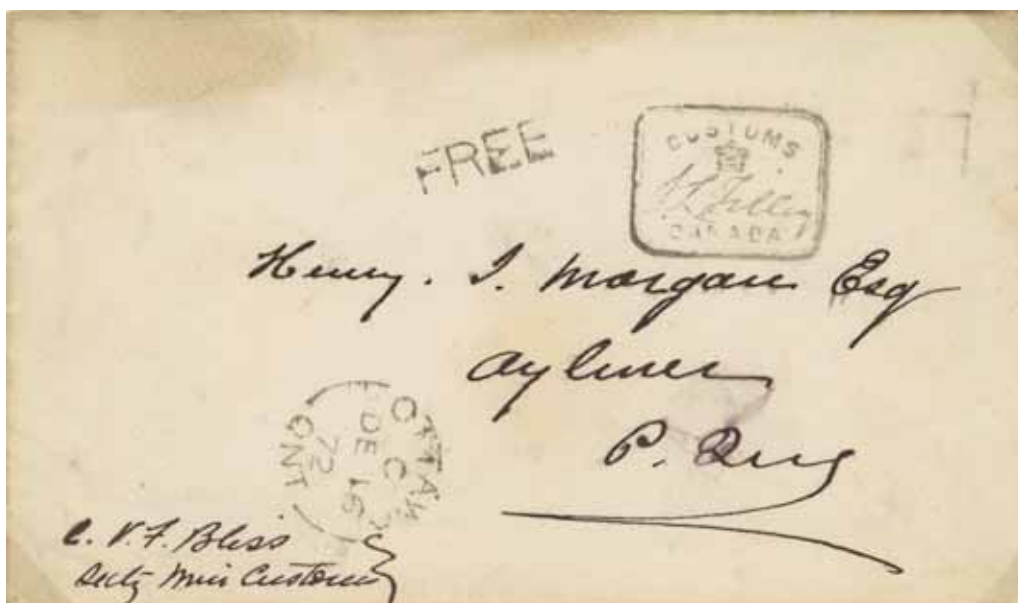 FREE
CUSTOMS
S L Tilley
CANADA
Henry. J. Morgan Esq
Aylmer
P. Que
OTTAWA
C
DE 16
72
ONT
C. V. F. Bliss
Secty Min Customs